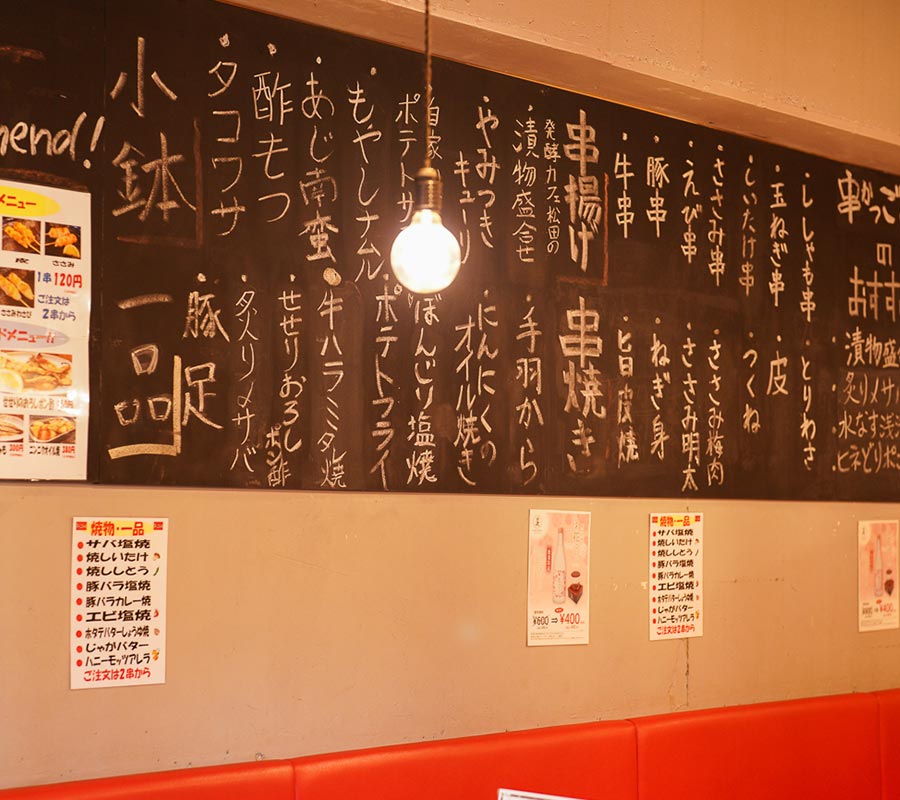 串かつご
の
おすす
・漬物盛
・炙りメサ
・水なす浅
・ヒネどりポ
・ししゃも串
・玉ねぎ串
・しいたけ串
・ささみ串
・えび串
・豚串
・牛串
串揚げ
発酵カフェ松田の
・漬物盛合せ
・やみつき
キュウリ
自家
ポテトサ
・もやしナムル
・あじ南蛮
・酢もつ
・タコワサ
小鉢
・とりわさ
・皮
・つくね
・ささみ梅肉
・ささみ明太
・ねぎ身
・旨皮焼
串焼き
・手羽から
・にんにくの
オイル焼き
・ぼんじり塩焼
・ポテトフライ
・牛ハラミタレ焼
・せせりおろし
ポン酢
・炙りメサバ
・豚足
一品
mend!
メニュー
ささみ
1串120円
ご注文は
2串から
ささみわさび
ドメニュー!!
せせりのおろしポン酢
ニンニクオイル焼
焼物・一品
サバ塩焼
焼しいたけ
焼ししとう
豚バラ塩焼
豚バラカレー焼
エビ塩焼
ホタテバターしょうゆ焼
じゃがバター
ハニーモッツアレラ
ご注文は2串から
¥600⇒¥400
焼物・一品
サバ塩焼
焼しいたけ
焼ししとう
豚バラ塩焼
豚バラカレー焼
エビ塩焼
ホタテバターしょうゆ焼
じゃがバター
ハニーモッツアレラ
ご注文は2串から